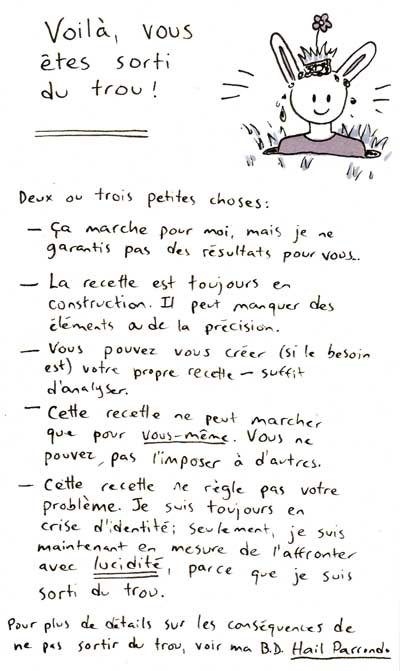 Voilà, vous
êtes sorti
du trou !
Deux ou trois petites choses :
— Ça marche pour moi, mais je ne
garantis pas des résultats pour vous.
— La recette est toujours en
construction. Il peut manquer des
éléments ou de la précision.
— Vous pouvez vous créer (si le besoin
est) votre propre recette — suffit
d'analyser.
— Cette recette ne peut marcher
que pour vous-même. Vous ne
pouvez pas l'imposer à d'autres.
— Cette recette ne règle pas votre
problème. Je suis toujours en
crise d'identité ; seulement, je suis
maintenant en mesure de l'affronter
avec lucidité, parce que je suis
sorti du trou.
Pour plus de détails sur les conséquences de
ne pas sortir du trou, voir ma B.D. Hail Parrondo